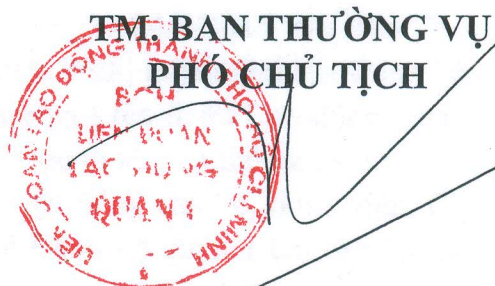 TM. BAN THƯỜNG VỤ
PHÓ CHỦ TỊCH
LIÊN ĐOÀN LAO ĐỘNG THÀNH PHỐ HỒ CHÍ MINH
BCH
LIÊN ĐOÀN
LAO ĐỘNG
QUẬN